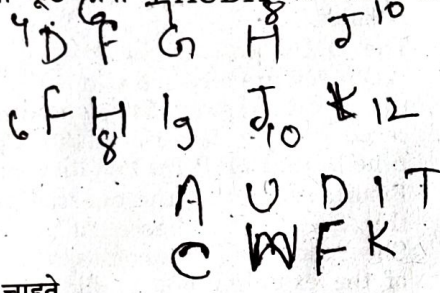 4 D 6 F G H 8 J 10
6 F H 8 I 9 J 10 K 12
A U D I T
C W F K
चाहते